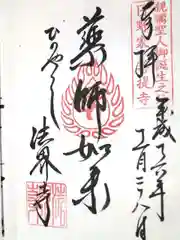 奉拝
親鸞聖人御誕生之地
日野家菩提寺
平成
六年
月
八日
薬師如来
ひのやくし
法界寺